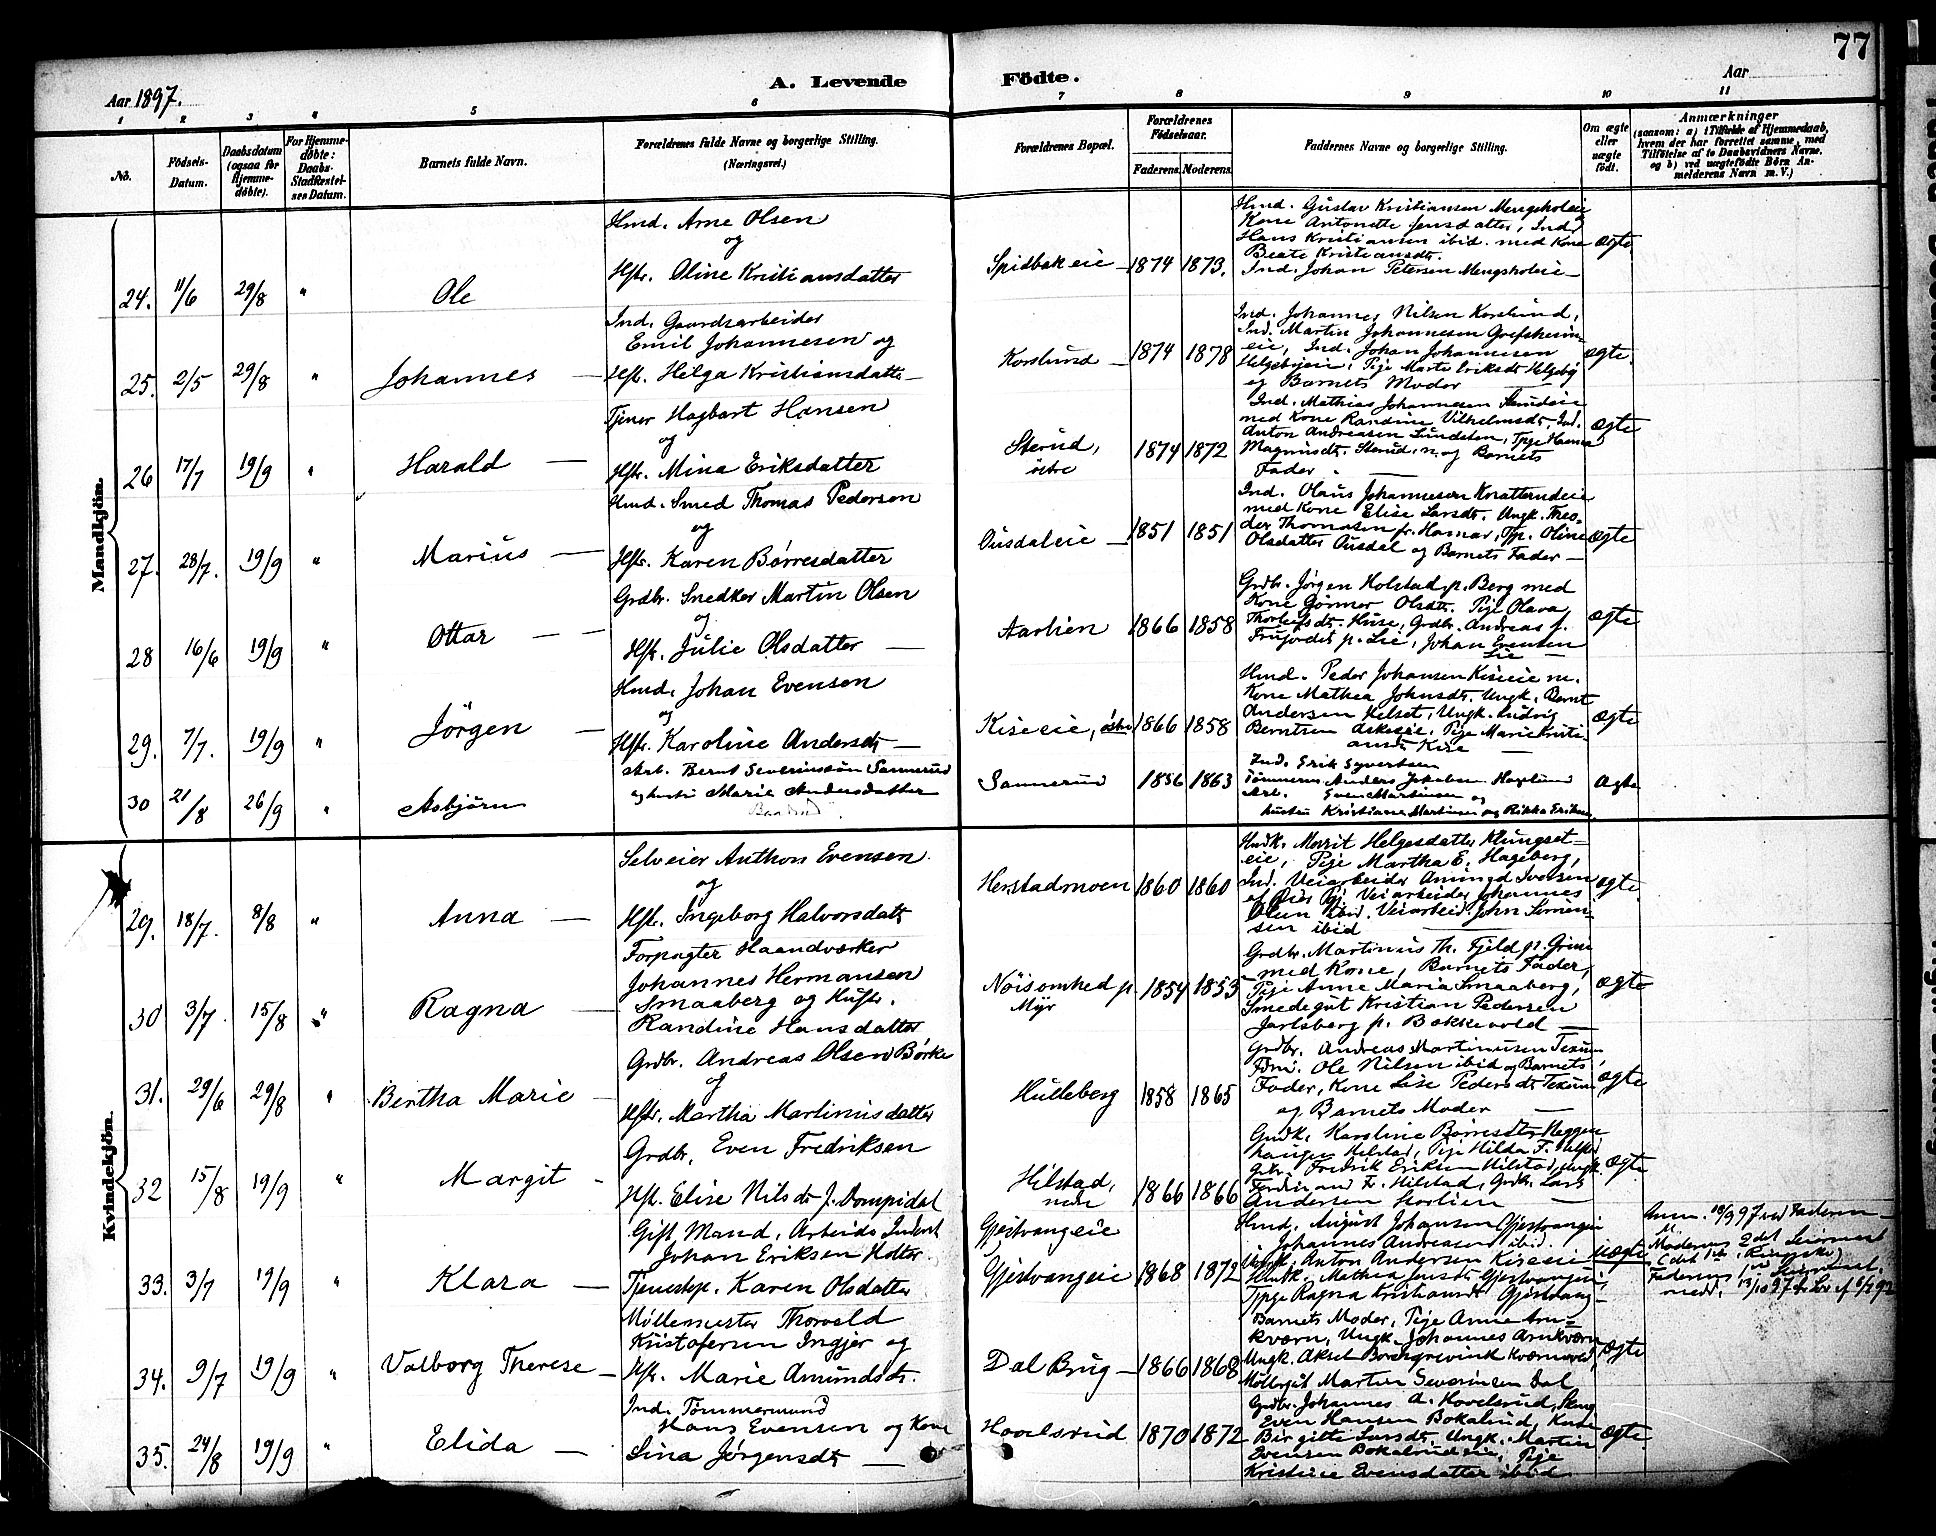 77
Aar 1897.
A. Levende Födte.
Aar
1 2 3 4 5 6 7 8 9 10 11
No.
Födsels-Datum.
Daabsdatum (ogsaa for Hjemmedöbte).
For Hjemmedöbte: Daabs-Stadfæstelses Datum.
Barnets fulde Navn.
Forældrenes fulde Navne og borgerlige Stilling. (Næringsvei.)
Forældrenes Bopæl.
Forældrenes Födselsaar.
Faderens. Moderens.
Faddernes Navne og borgerlige Stilling.
Om ægte eller uægte födt.
Anmærkninger
(saasom: a) i Tilfælde af Hjemmedaab, hvem der har forrettet samme, med Tilföielse af to Daabsvidners Navne, og b) ved uægtefödte Börn Anmelderens Navn m. V.)
Mandkjön.
24. 11/6 29/8 " Ole
Hmd. Arne Olsen
og
Hstr. Oline Kristiansdatter
Spidbakeie 1874 1873.
Hmd. Gustav Kristiansen Mengsholeie
Kone Antonette Jensdatter, Ind.
Hans Kristiansen ibid. med Kone
Beate Kristiansdt.
Ind. Johan Petersen Mengsholeie
ægte
25. 2/5 29/8 " Johannes
Ind. Gaardsarbeider
Emil Johannesen og
Hst. Helga Kristiansdatter
Korslund 1874 1878
Ind. Johannes Nilsen Korslund,
Ind. Martin Johannesen
eie, Ind. Johan Johannesen
Helgebyeie, Pige Marte Eriksdt Helgeby
og Barnets Moder
ægte.
26 17/7 19/9 " Harald
Tjener Hagbart Hansen
og
Hstr. Mina Eriksdatter
Sterud, östre 1874 1872
Ind. Mathias Johannesen
med Kone Randine Vilhelmsdt. Ind.
Anton Andreasen
Magnusdt. Sterud, n. og Barnets
Fader.
ægte
27. 28/7. 19/9 " Marius
Hmd. Smed Thomas Pedersen
og
Hstr. Karen Børresdatter
Ousdaleie 1851 1851
Ind. Olaus Johannesen
med Kone Elise Larsdt. Ungk. Theo-
dor Thomasen fr. Hamar, Tjp. Oline
Olsdatter Ousdal og Barnets Fader
ægte
28 16/6 19/9 " Ottar
Grdbr. Snedker Martin Olsen
og
Hstr. Julie Olsdatter
Aarlien 1866 1858
Grdbr. Jørgen Holstad p. Berg med
Kone Olsdt. Pige Olava
Huse, Grdbr. Andreas J.
p. Lie, Johan Evensen
Lie
ægte
29. 7/7. 19/9 " Jörgen
Hmd. Johan Evensen
og
Hstr. Karoline Andersdt
Kiseeie, östre 1866 1858
Hmd. Peder Johansen Kiseeie m.
Kone Mathea Johnsdt. Ungk. Bernt
Andersen Helset, Ungk. Ludvig
Berntsen Pige Marie Kristi-
ansdt. Kise
ægte
30 21/8 26/9 " Asbjörn
Arb. Bernt Severinssön Sannerud
og hustru Marie Andersdatter
Sannerud 1856 1863
Ind. Erik Syvertsen
Tömmerm. Anders Jakobsen Haglund
Arb. Even Martinsen og
hustru Kristiane Martinsen og Rikka Eriksen.
Ægte
Kvindekjön.
29. 18/7. 8/8 " Anna
Selveier Anthon Evensen
og
Hstr. Ingeborg Halvorsdatt.
Herstadmoen 1860 1860
Marit Helgesdatter Klungset-
eie, Pige Martha E. Hageberg,
Ind. Veiarbeider Amund Iversen
Veiarbeider Johannes
Olsen ibid. Veiarbeid. John Simen-
sen ibid
ægte
30 3/7. 15/8 " Ragna
Forpagter Haandværker
Johannes Hermansen
Smaaberg og Hustr.
Randine Hansdatter
Nöisomhed p. Myr 1854 1853
Grdbr. Martinus Th. Fjeld p. Grim
med Kone, Barnets Fader,
Pige Anne Maria Smaaberg,
Smedegut Kristian Pedersen
Jarlsberg p. Bakkevold
ægte
31. 29/6 29/8 " Bertha Marie
Grdbr. Andreas Olsen Börke
og
Hstr. Martha Martinusdatter
Hulleberg 1858 1865
Grdbr. Andreas Martinusen Texum
Ole Nilsen ibid og Barnets
Fader, Kone Lise Pedersdt Texum
og Barnets Moder
ægte
32 15/8 19/9 " Margit
Grdbr. Even Fredriksen
Hst. Elise Nilsdt f. Dompidal
Hilstad, nedre 1866 1866
Karoline Börresdt.
Hilstad, Pige Hilda F.
Fredrik Eriksen Hilstad, Ungk.
Ferdinand F. Hilstad, Grdbr. Lars
Andersen Storlien
ægte
33. 3/7 19/9 " Klara
Gift Mand, Arbeids Inderst
Johan Eriksen Holter.
Tjenestep. Karen Olsdatter
Gjestvangeie
Gjestvangeie 1868 1872
Hmd. August Johansen Gjestvangeie
Johannes Andreasen ibid.
Anton Andersen Kiseeie
Mathea Jensdt Gjestvangeie,
Tpge Ragna Kristiansdt Gjestvang-
uægte
Anm. 18/9 97 ved Faderen
Moderens 2det Leiermaal
Faderens 1ste Leiermaal.
34. 9/7 19/9 " Valborg Therese
Möllemester Thorvald
Kristofersen Ingjer og
Hstr. Marie Amundsdt.
Dal Brug 1866 1868
Barnets Moder, Pige Anne Arn-
kværn, Ungk. Johannes Arnkværn
Ungk. Aksel Borchgrevink Kværnved,
Möllegut Martin Severinsen Dal
ægte
35. 24/8 19/9 " Elida
Ind. Tömmermand
Hans Evensen og Kone
Lina Jörgensdt
Hovelsrud 1870 1872
Grdbr. Johannes A. Hovelsrud,
Even Hansen Bokalrud, Kone
Birgitte Larsdt. Ungk. Martin
Evensen Bokalrudeie, Pige
Kristine Evensdatter ibid
ægte